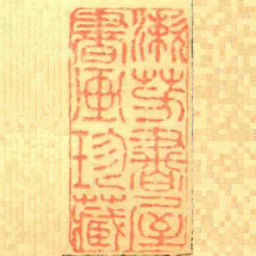 漱芳書屋
書画珍藏